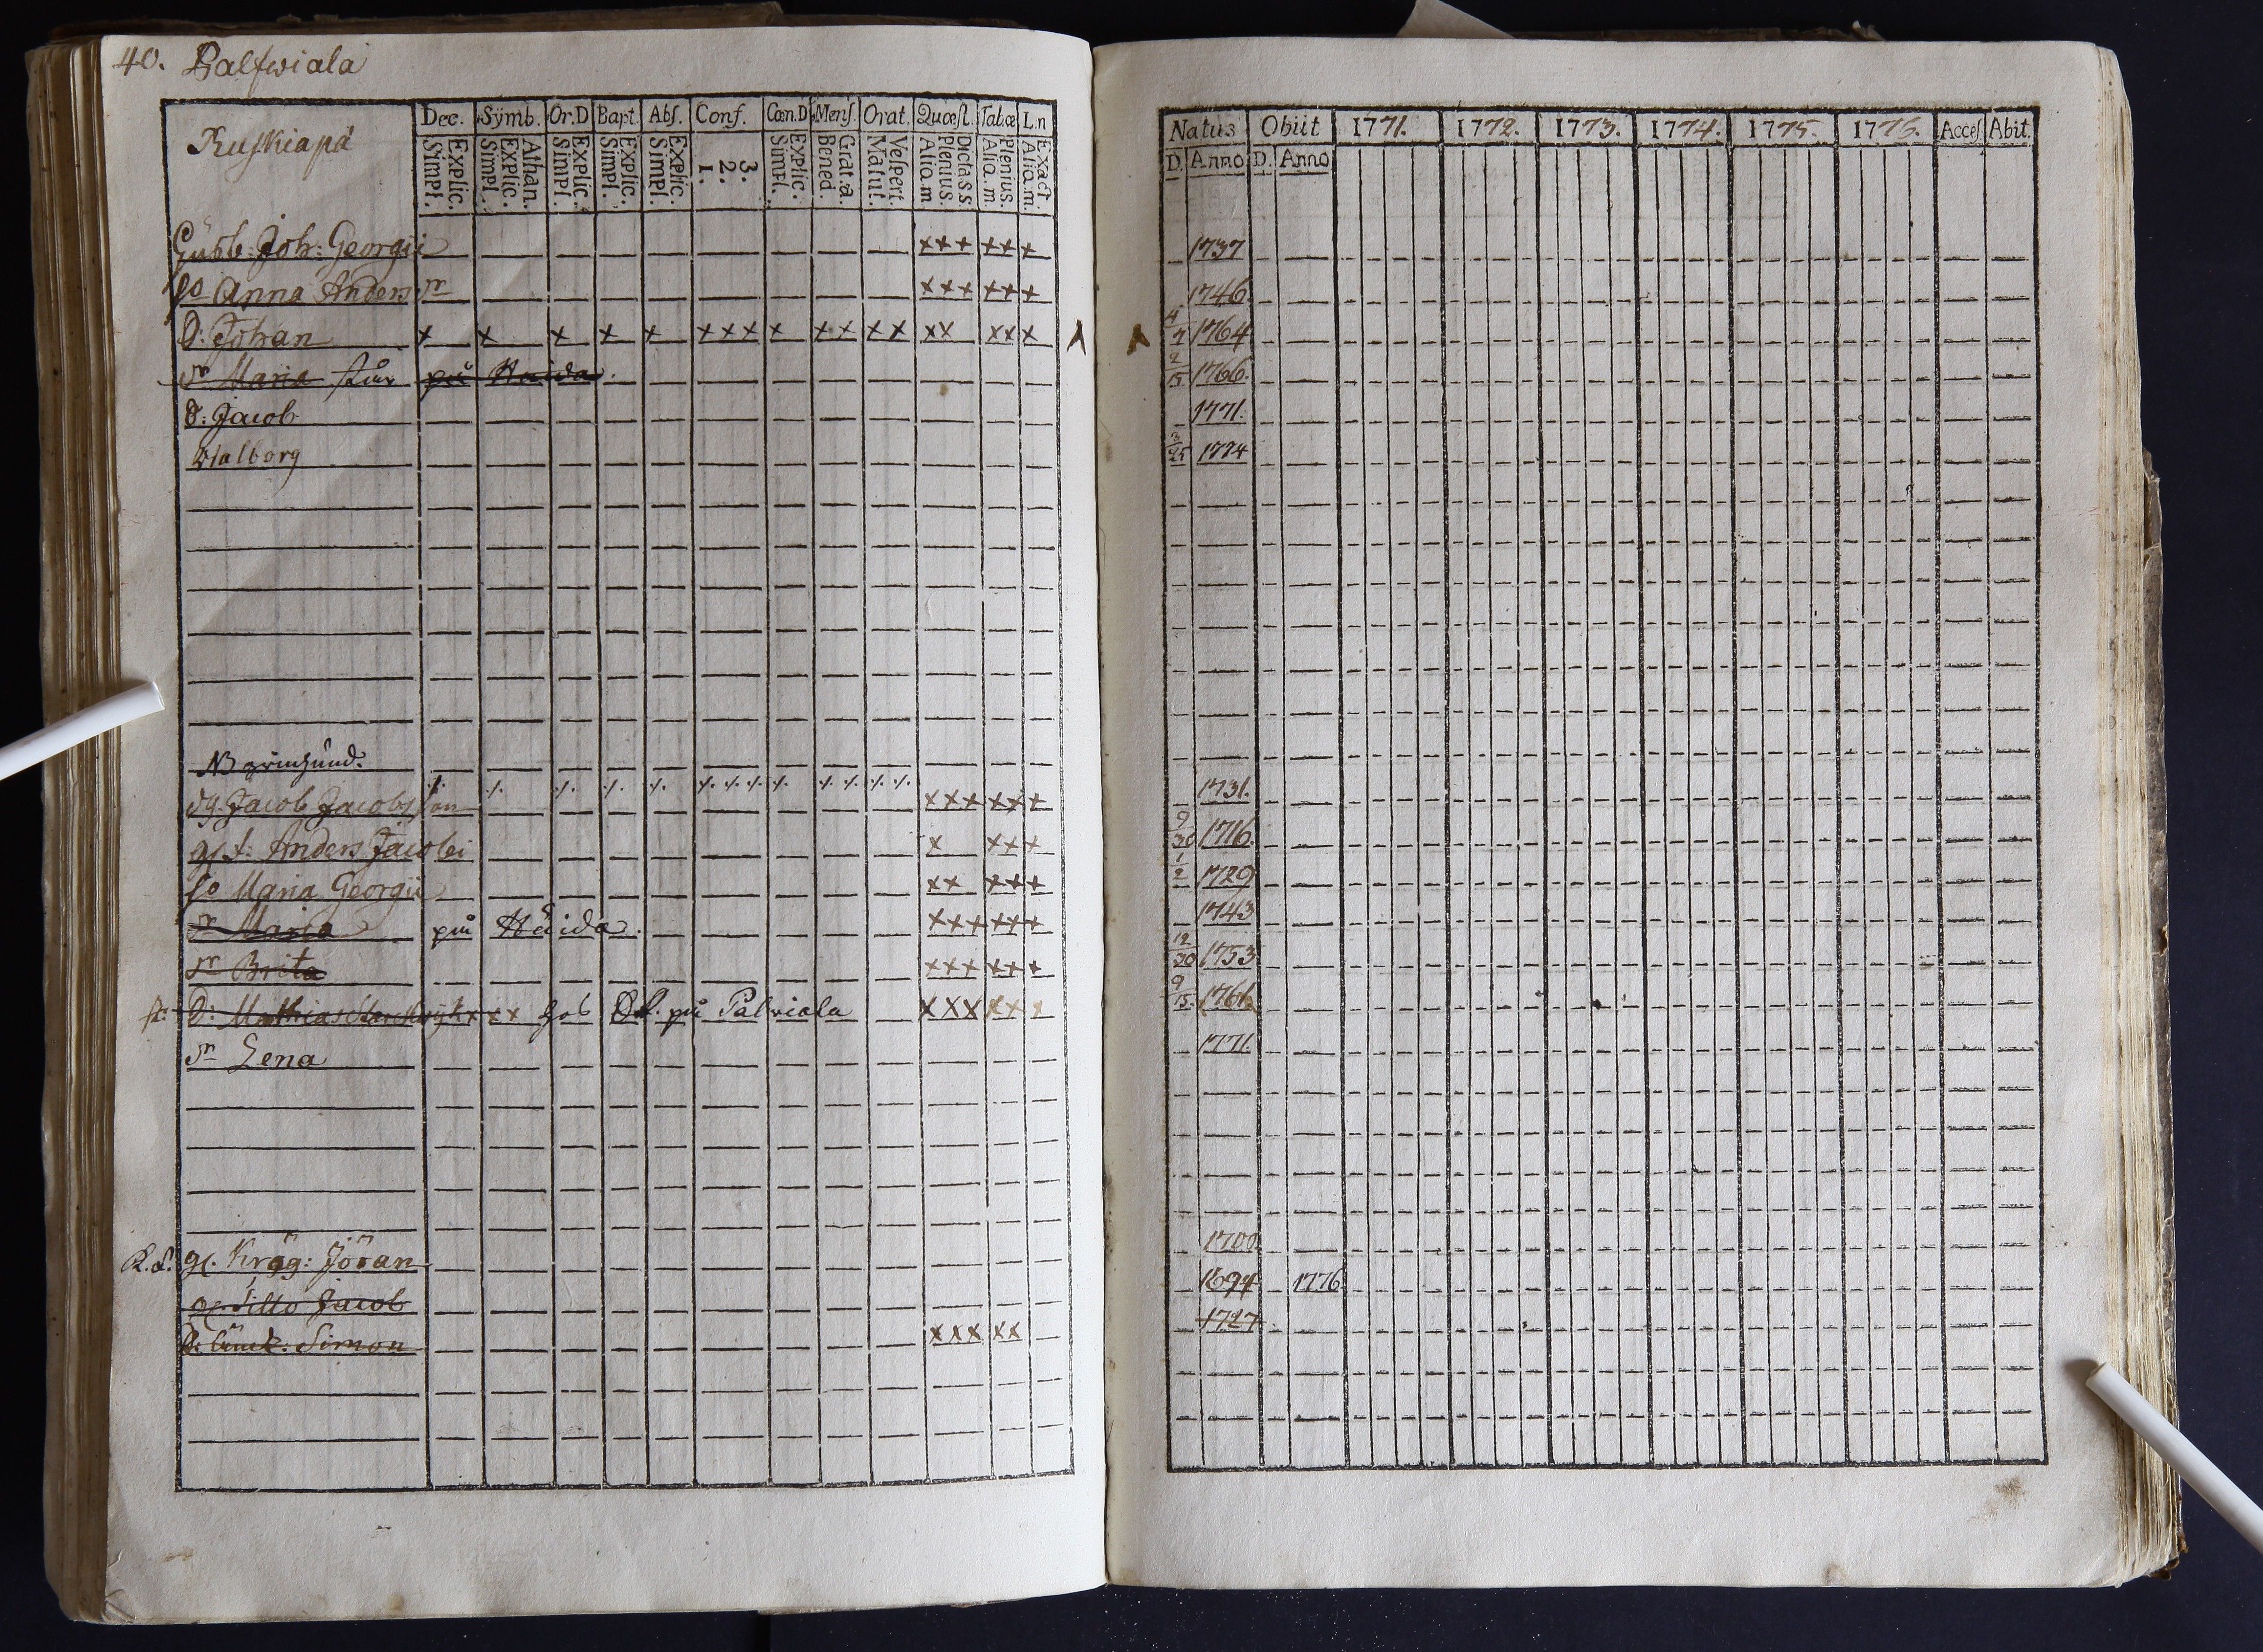 40. Palfwiala
Ruskiapä
Dec. Symb. Or.D Bapt. Abſ. Conf. Cœn.D Menſ. Orat. Quæſt. Tabœ L.n
Explic. Simpl. Athan. Explic. Simpl. Explic. Simpl. Explic. Simpl. Explic. Simpl. 3. 2. 1. Explic. Simpl. Grat.a. Bened. Veſpert. Matut. Dicta S S Plenius. Alio.m Plenius. Alio.m. Exact. Alio.m.
Natus Obiit 1771. 1772. 1773. 1774. 1775. 1776. Acceſ. Abit.
D. Anno D. Anno
Husb. Joh: Georgii xxx xxx 1737
ho Anna Anders dr xxx xxx 1746.
S: Johan x x x x x xxx x xx xx xx xx x 4/7 1764
dr Maria på Haida. 2/15 1766.
S: Jacob 1771.
Walborg 3/25 1774
NB
Jacob Jacobsson xxx xxx 1731.
Anders Jacobi x xxx 9/30 1716.
ho Maria Georgii xx xxx 1/2 1729
dr Maria på Haida. xxx xxx 1743
dr Brita xxx xxx 12/30 1753
S: Mathias på Palviala xxx xxx 9/15.
dr Lena 1771.
gl. Kräg: Jöran 1700
gl. ditto Jacob 1694 1776
Simon xxx xx 1727